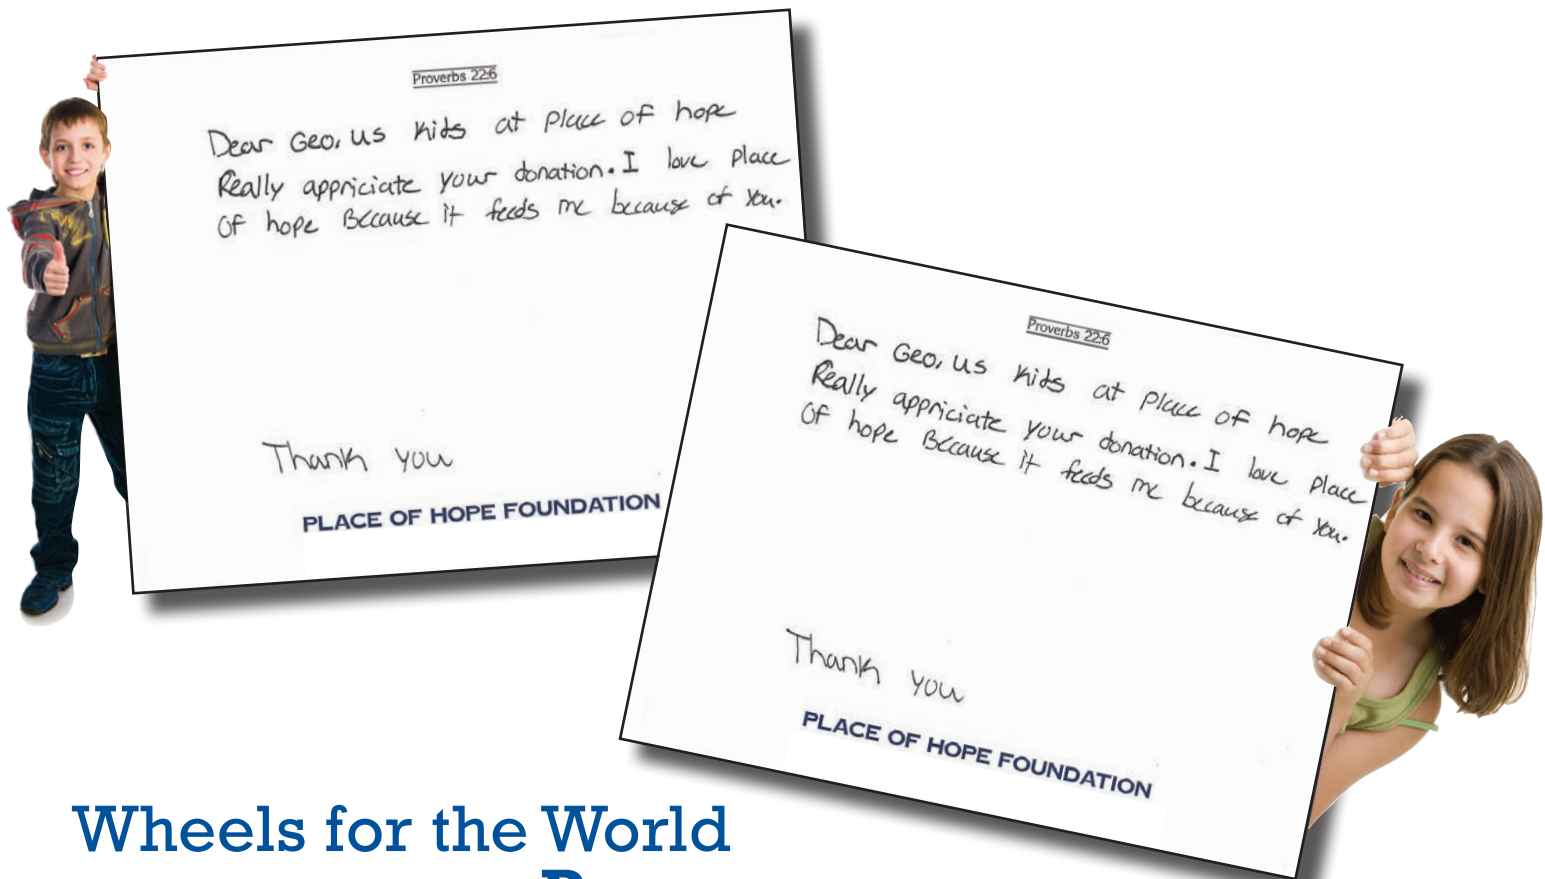 Proverbs 22:6
Dear Geo, us kids at place of hope
Really appriciate your donation. I love place
Of hope Because it feeds me because of you.
Thank you
PLACE OF HOPE FOUNDATION
Proverbs 22:6
Dear Geo, us kids at place of hope
Really appriciate your donation. I love place
Of hope Because it feeds me because of you.
Thank you
PLACE OF HOPE FOUNDATION
Wheels for the World